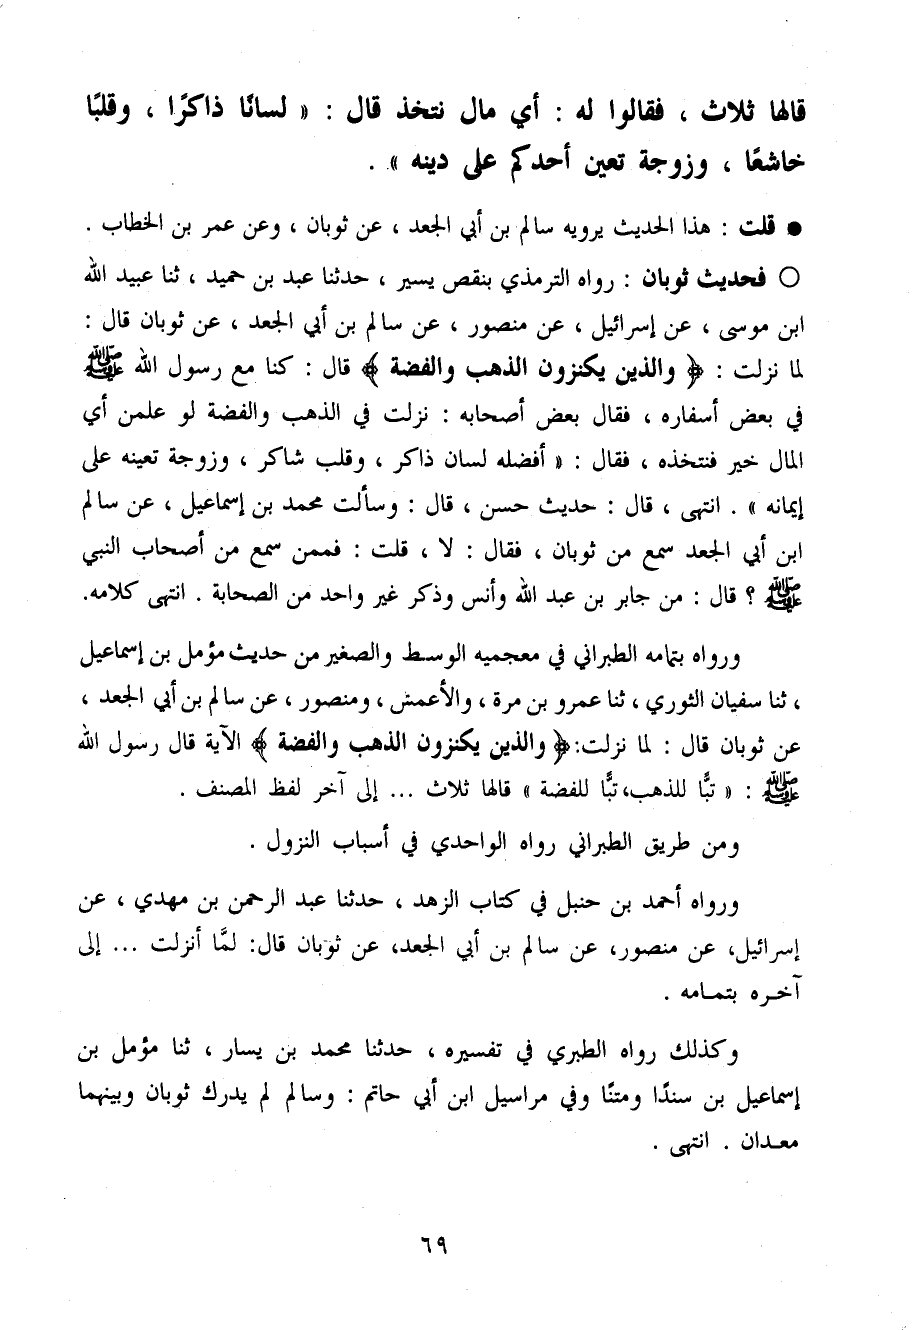 قالها ثلاث ، فقالوا له : أي مال نتخذ قال : « لسانًا ذاكرًا ، وقلبًا
خاشعًا ، وزوجة تعين أحدكم على دينه » .
● قلت : هذا الحديث يرويه سالم بن أبي الجعد ، عن ثوبان ، وعن عمر بن الخطاب .
○ فحديث ثوبان : رواه الترمذي بنقص يسير ، حدثنا عبد بن حميد ، ثنا عبيد الله
ابن موسى ، عن إسرائيل ، عن منصور ، عن سالم بن أبي الجعد ، عن ثوبان قال :
لما نزلت : ﴿ والذين يكنزون الذهب والفضة ﴾ قال : كنا مع رسول الله ﷺ
في بعض أسفاره ، فقال بعض أصحابه : نزلت في الذهب والفضة لو علمن أي
المال خير فنتخذه ، فقال : « أفضله لسان ذاكر ، وقلب شاكر ، وزوجة تعينه على
إيمانه » . انتهى ، قال : حديث حسن ، قال : وسألت محمد بن إسماعيل ، عن سالم
ابن أبي الجعد سمع من ثوبان ، فقال : لا ، قلت : فممن سمع من أصحاب النبي
ﷺ ؟ قال : من جابر بن عبد الله وأنس وذكر غير واحد من الصحابة . انتهى كلامه.
ورواه بتمامه الطبراني في معجميه الوسط والصغير من حديث مؤمل بن إسماعيل
، ثنا سفيان الثوري ، ثنا عمرو بن مرة ، والأعمش ، ومنصور ، عن سالم بن أبي الجعد ،
عن ثوبان قال : لما نزلت: ﴿ والذين يكنزون الذهب والفضة ﴾ الآية قال رسول الله
ﷺ : « تبًّا للذهب، تبًّا للفضة » قالها ثلاث ... إلى آخر لفظ المصنف .
ومن طريق الطبراني رواه الواحدي في أسباب النزول .
ورواه أحمد بن حنبل في كتاب الزهد ، حدثنا عبد الرحمن بن مهدي ، عن
إسرائيل، عن منصور، عن سالم بن أبي الجعد، عن ثوبان قال: لمَّا أنزلت ... إلى
آخره بتمامه .
وكذلك رواه الطبري في تفسيره ، حدثنا محمد بن يسار ، ثنا مؤمل بن
إسماعيل بن سندًا ومتنًا وفي مراسيل ابن أبي حاتم : وسالم لم يدرك ثوبان وبينهما
معدان . انتهى .
٦٩